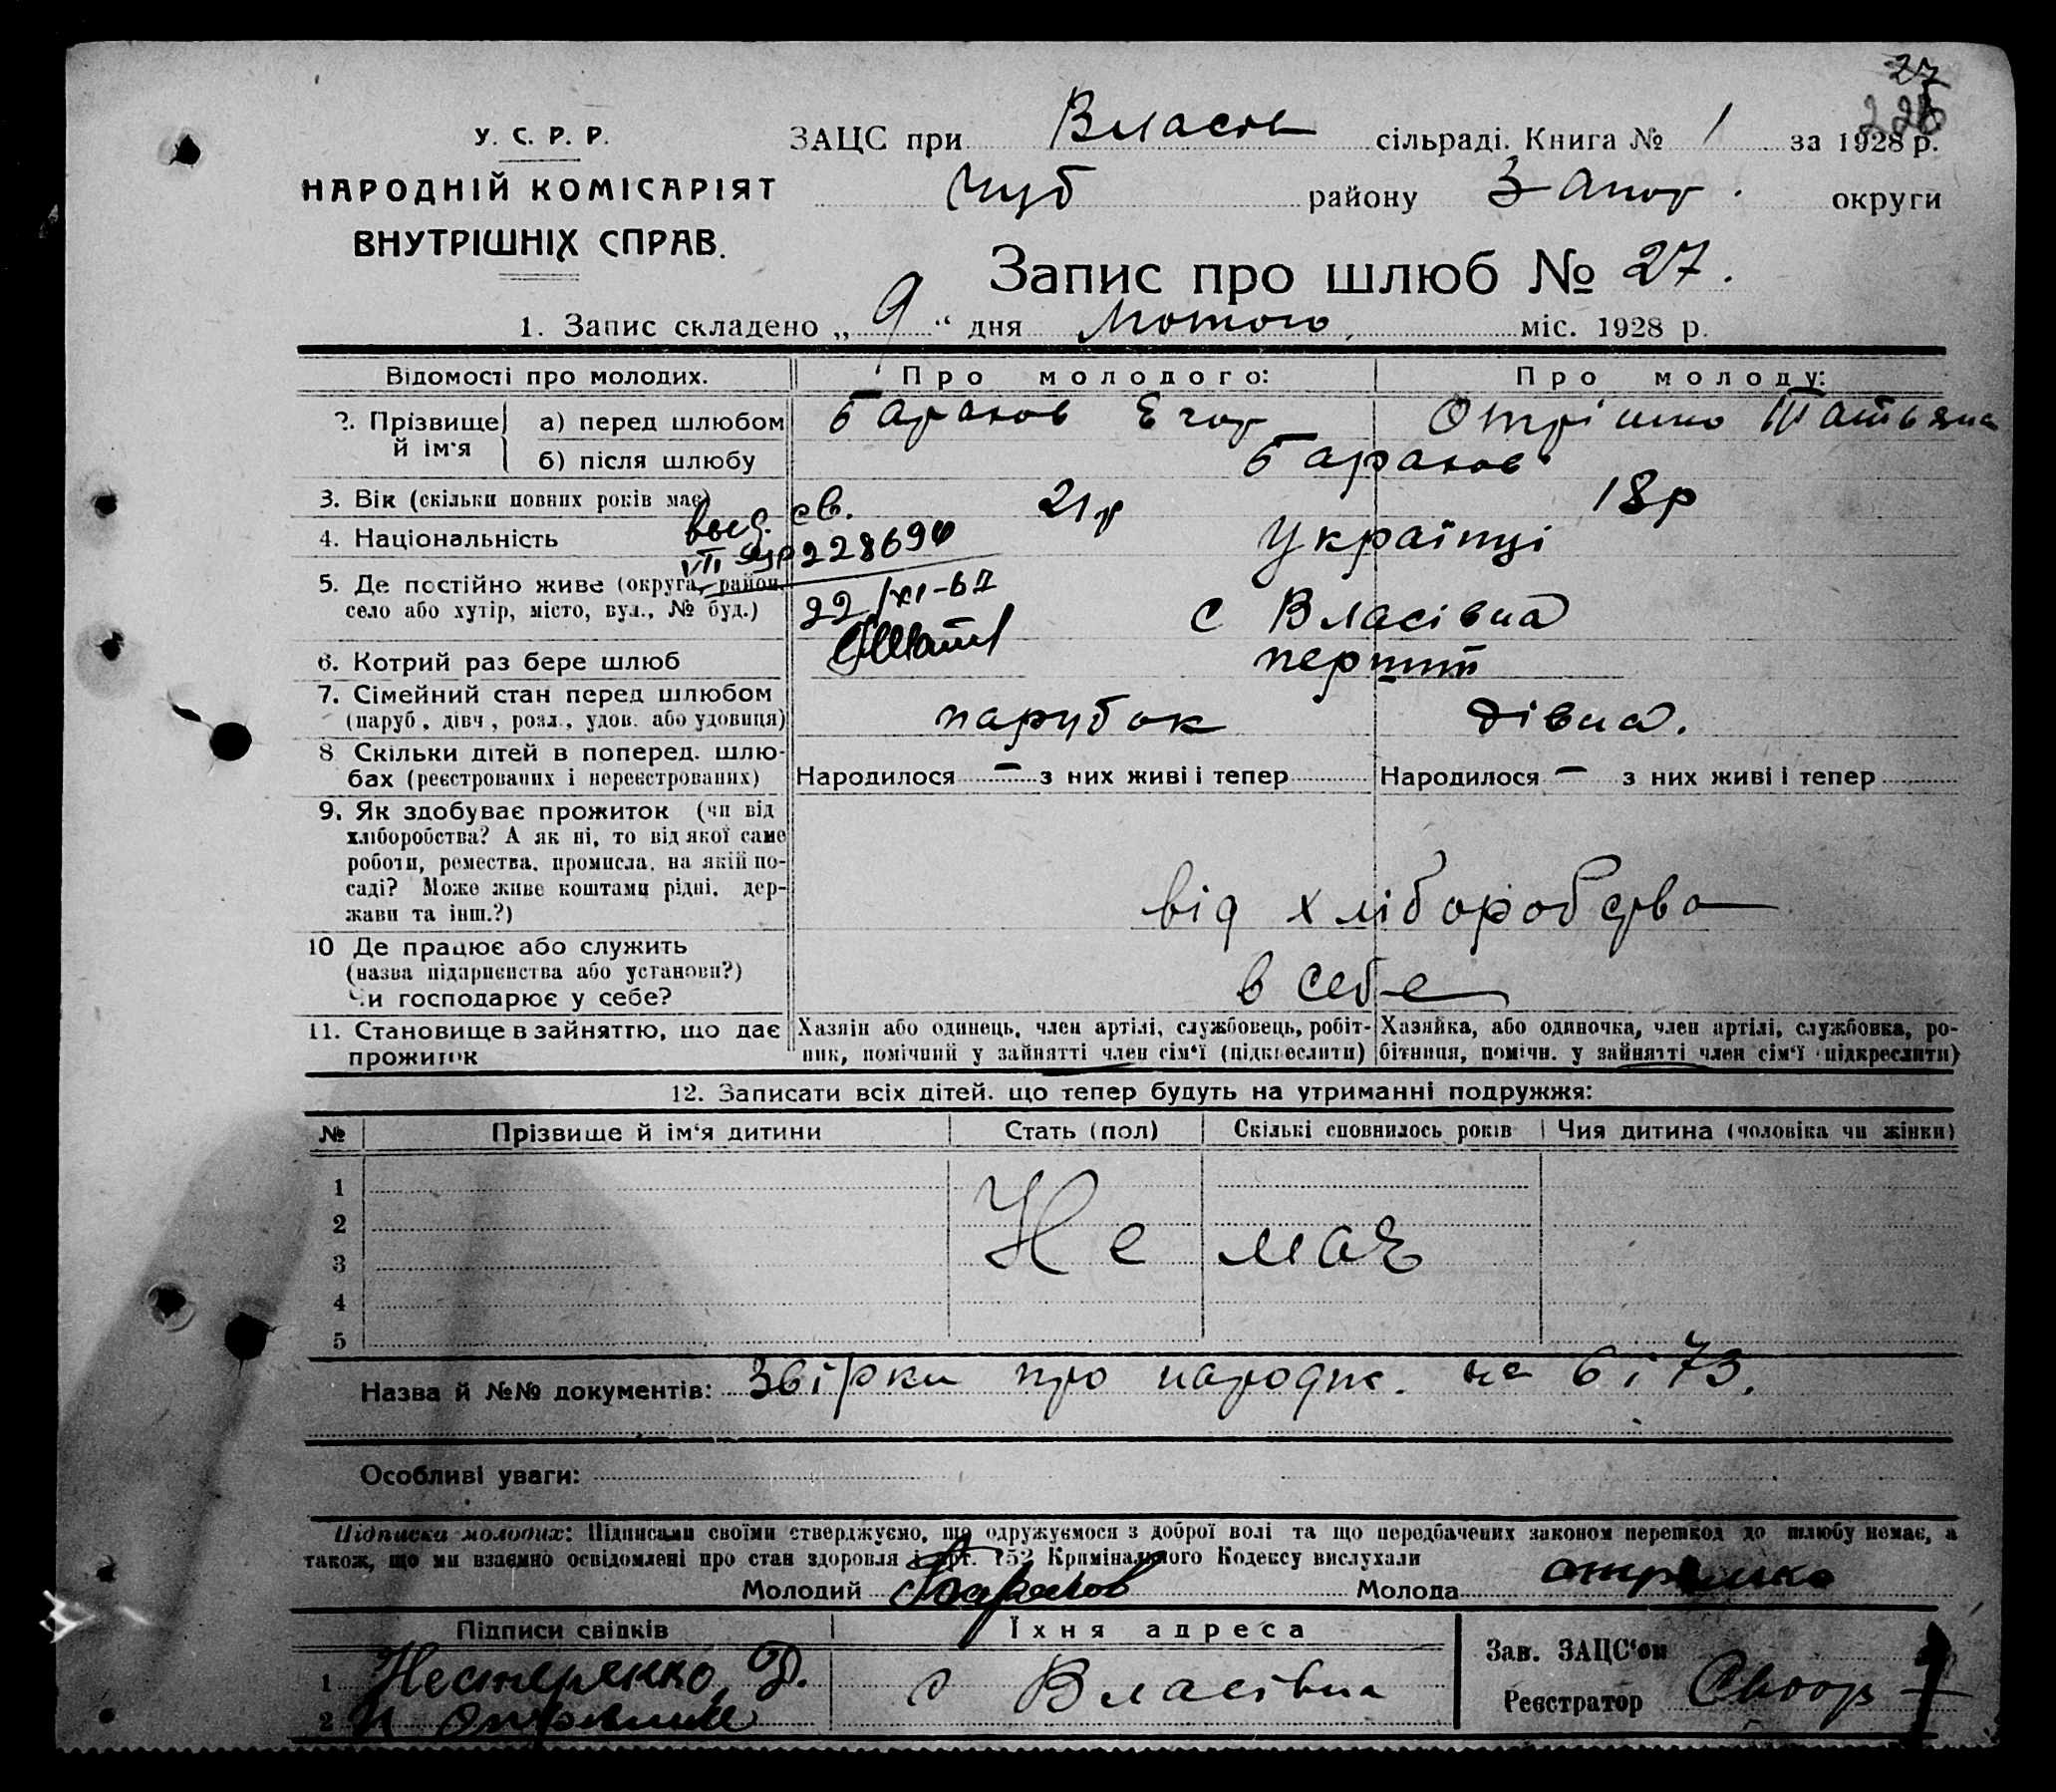 27
226
У. С. Р. Р.
НАРОДНІЙ КОМІСАРІЯТ
ВНУТРІШНІХ СПРАВ.
ЗАЦС при Власів сільраді. Книга № 1 за 1928 р.
Чуб району Запор. округи
Запис про шлюб № 27.
1. Запис складено „ 9 “ дня Лютого міс. 1928 р.
Відомості про молодих. Про молодого: Про молоду:
2. Прізвище й ім'я а) перед шлюбом Баранов Егор Отрішко Татьяна
б) після шлюбу Баранов
3. Вік (скільки повних років має) 21 р 18 р
выд. св.
VII 228694
22/XI-67
4. Національність Українці
5. Де постійно живе (округа, район,
село або хутір, місто, вул., № буд.) с Власівка
6. Котрий раз бере шлюб перший
7. Сімейний стан перед шлюбом
(паруб., дівч., розл., удов. або удовиця) парубок дівка.
8 Скільки дітей в поперед. шлю-
бах (реєстрованих і нереєстрованих) Народилося – з них живі і тепер Народилося – з них живі і тепер
9. Як здобуває прожиток (чи від
хліборобства? А як ні, то від якої саме
роботи, ремества, промисла, на якій по-
саді? Може живе коштами рідні, дер-
жави та інш.?) від хліборобства
10 Де працює або служить
(назва підприємства або установи?)
Чи господарює у себе? в себе
11. Становище в зайняттю, що дає
прожиток
Хазяїн або одинець, член артілі, службовець, робіт-
ник, помічний у зайнятті член сім'ї (підкреслити)
Хазяйка, або одиночка, член артілі, службовка, ро-
бітниця, помічн. у зайнятті член сім'ї (підкреслити)
12. Записати всіх дітей. що тепер будуть на утриманні подружжя:
№ Прізвище й ім'я дитини Стать (пол) Скількі сповнилось років Чия дитина (чоловіка чи жінки)
1
2
3 Не має
4
5
Назва й №№ документів: Звірки про народж. на 6 і 73.
Особливі уваги:
Підписка молодих: Підписами своїми стверджуємо, що одружуємося з доброї волі та що передбачених законом перешкод до шлюбу немає, а
також, що ми взаємно освідомлені про стан здоровля і арт. 152 Кримінального Кодексу вислухали
Молодий Баранов Молода отрішко
Підписи свідків Їхня адреса
1 Нестеренко Ф. с Власівка
2
Зав. ЗАЦС'ом
Реєстратор